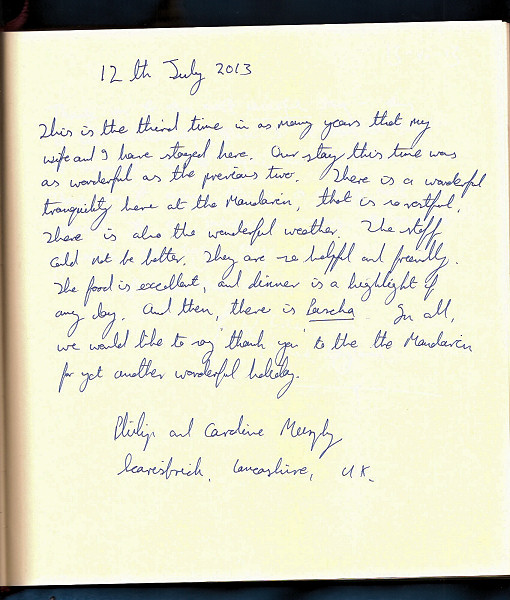 12th July 2013
This is the third time in as many years that my
wife and I have stayed here. Our stay this time was
as wonderful as the previous two. There is a wonderful
tranquility here at the Mandarin, that is so restful.
There is also the wonderful weather. The staff
could not be better. They are so helpful and friendly.
The food is excellent, and dinner is a highlight of
any day. And then, there is Bascha. In all,
we would like to say 'thank you' to the the Mandarin
for yet another wonderful holiday.
Philip and Caroline Murphy
Scarisbrick, Lancashire, UK.